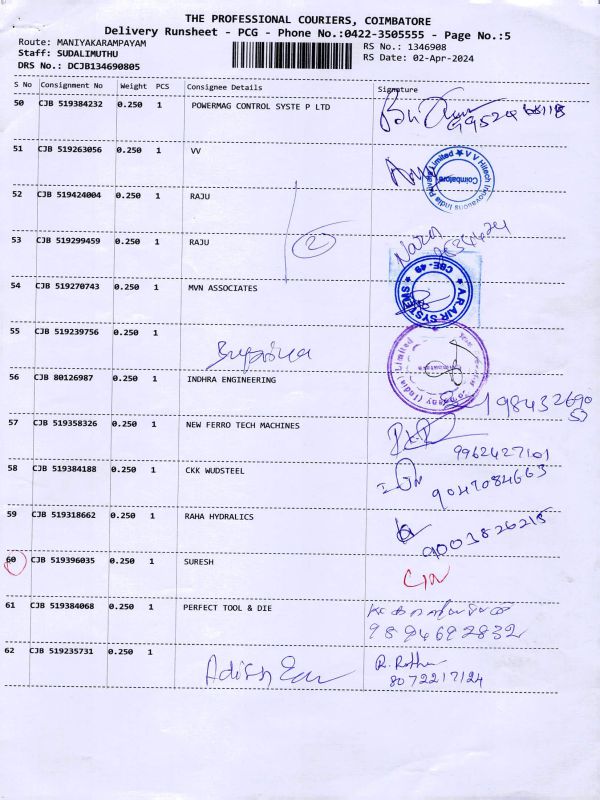 THE PROFESSIONAL COURIERS, COIMBATORE
Delivery Runsheet - PCG - Phone No.:0422-3505555 - Page No.:5
Route: MANIYAKARAMPAYAM
RS No.: 1346908
Staff: SUDALIMUTHU
RS Date: 02-Apr-2024
DRS No.: DCJB134690805
S No Consignment No Weight PCS Consignee Details Signature
50 CJB 519384232 0.250 1 POWERMAG CONTROL SYSTE P LTD
51 CJB 519263056 0.250 1 VV
V V Hitech Innovations India Private Limited
Coimbatore
52 CJB 519424004 0.250 1 RAJU
53 CJB 519299459 0.250 1 RAJU 2
54 CJB 519270743 0.250 1 MVN ASSOCIATES
A.R AIR SYSTEMS
CBE-49
55 CJB 519239756 0.250 1
(India) Limited
56 CJB 80126987 0.250 1 INDHRA ENGINEERING
57 CJB 519358326 0.250 1 NEW FERRO TECH MACHINES
9962427101
58 CJB 519384188 0.250 1 CKK WUDSTEEL
9047084663
59 CJB 519318662 0.250 1 RAHA HYDRALICS
9003826215
60 CJB 519396035 0.250 1 SURESH
61 CJB 519384068 0.250 1 PERFECT TOOL & DIE
9894692832
62 CJB 519235731 0.250 1
8072217124